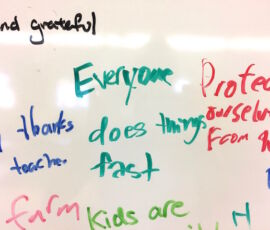 and grateful
Everyone
does things
fast
Protec
ourselve
From
thanks
teache.
farm
Kids are